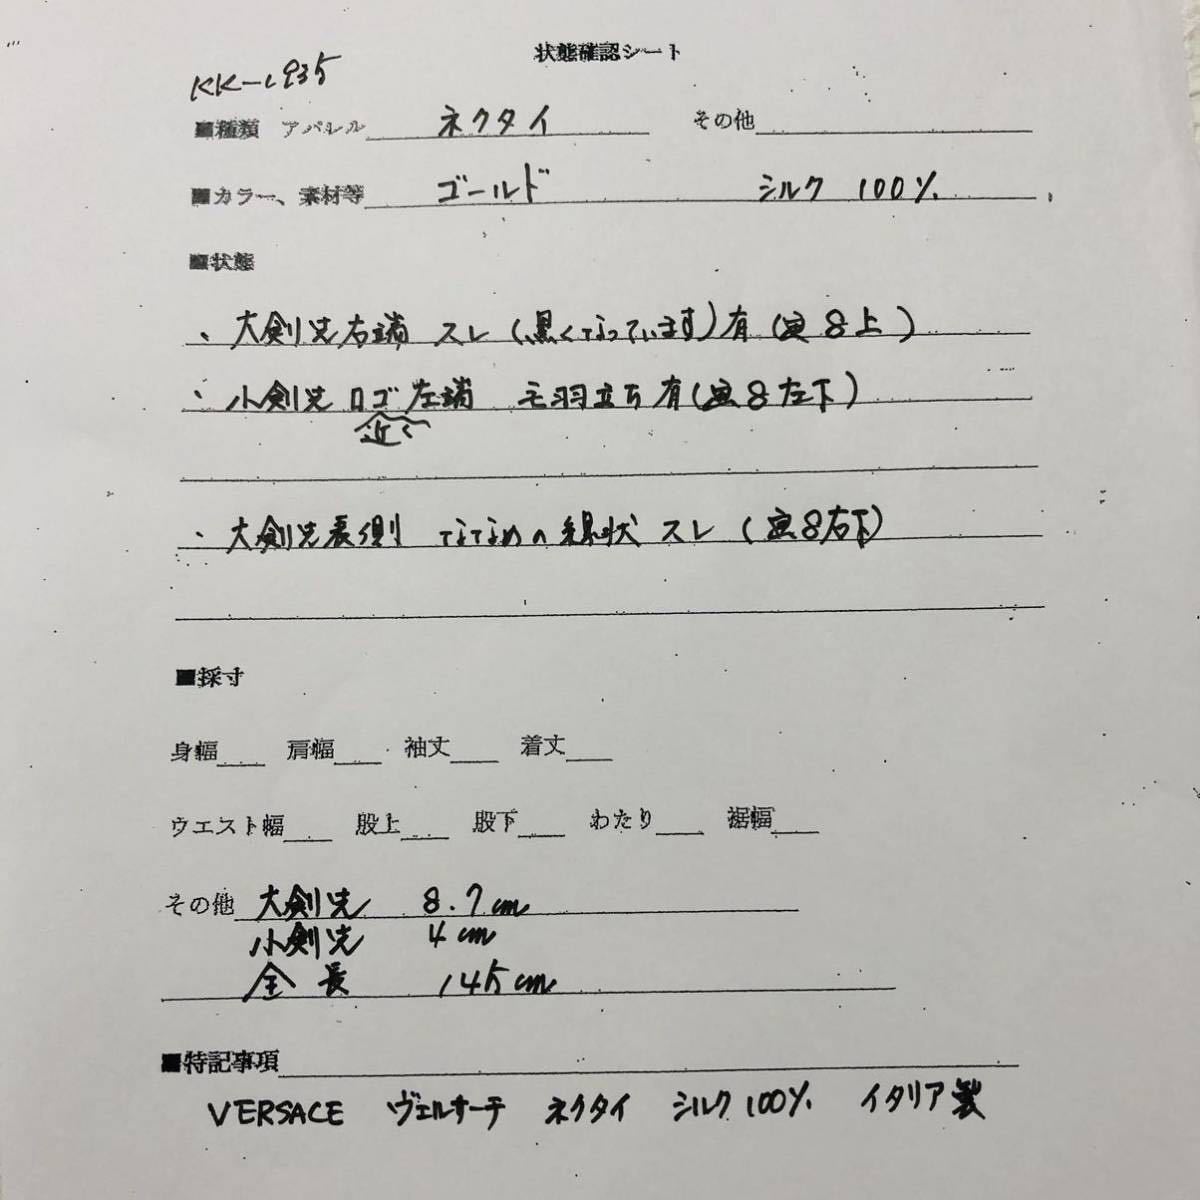 状態確認シート
KK-1935
■種類 アパレル ネクタイ その他
■カラー、素材等 ゴールド シルク 100%
■状態
・大剣先右端 スレ(黒くなっています)有(画8上)
・小剣先 ロゴ左端 毛羽立ち有(画8左下)
近く
・大剣先裏側 ななめの線状 スレ(画8右下)
■採寸
身幅 肩幅 袖丈 着丈
ウエスト幅 股上 股下 わたり 裾幅
その他 大剣先 8.7cm
小剣先 4cm
全長 145cm
■特記事項
VERSACE ヴェルサーチ ネクタイ シルク100% イタリア製